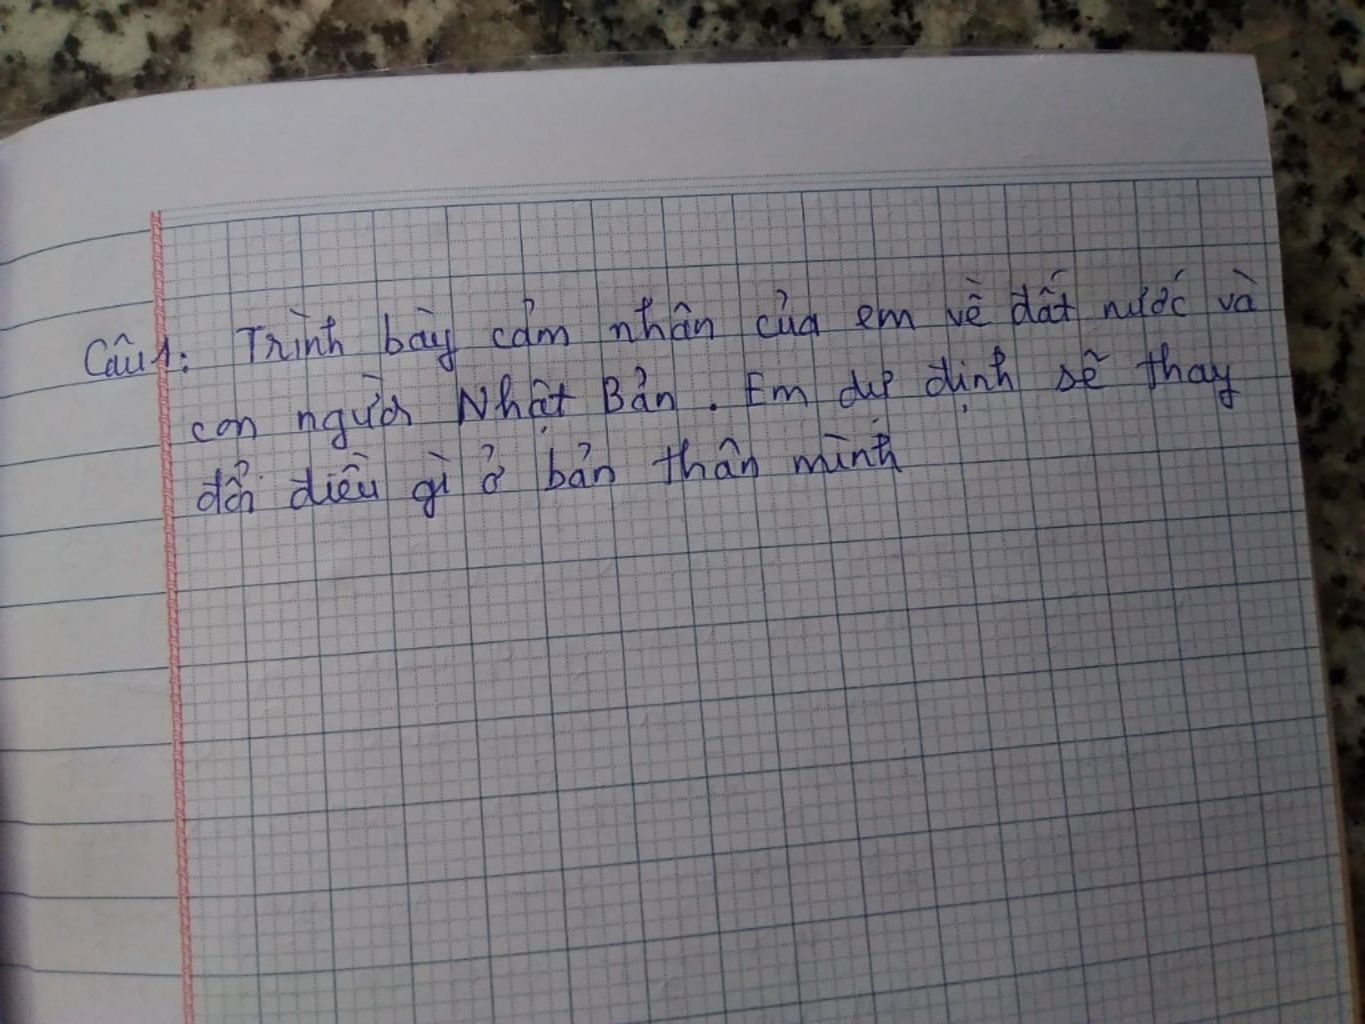 Câu 1: Trình bày cảm nhân của em về đất nước và
con người Nhật Bản. Em dự định sẽ thay
đổi điều gì ở bản thân mình